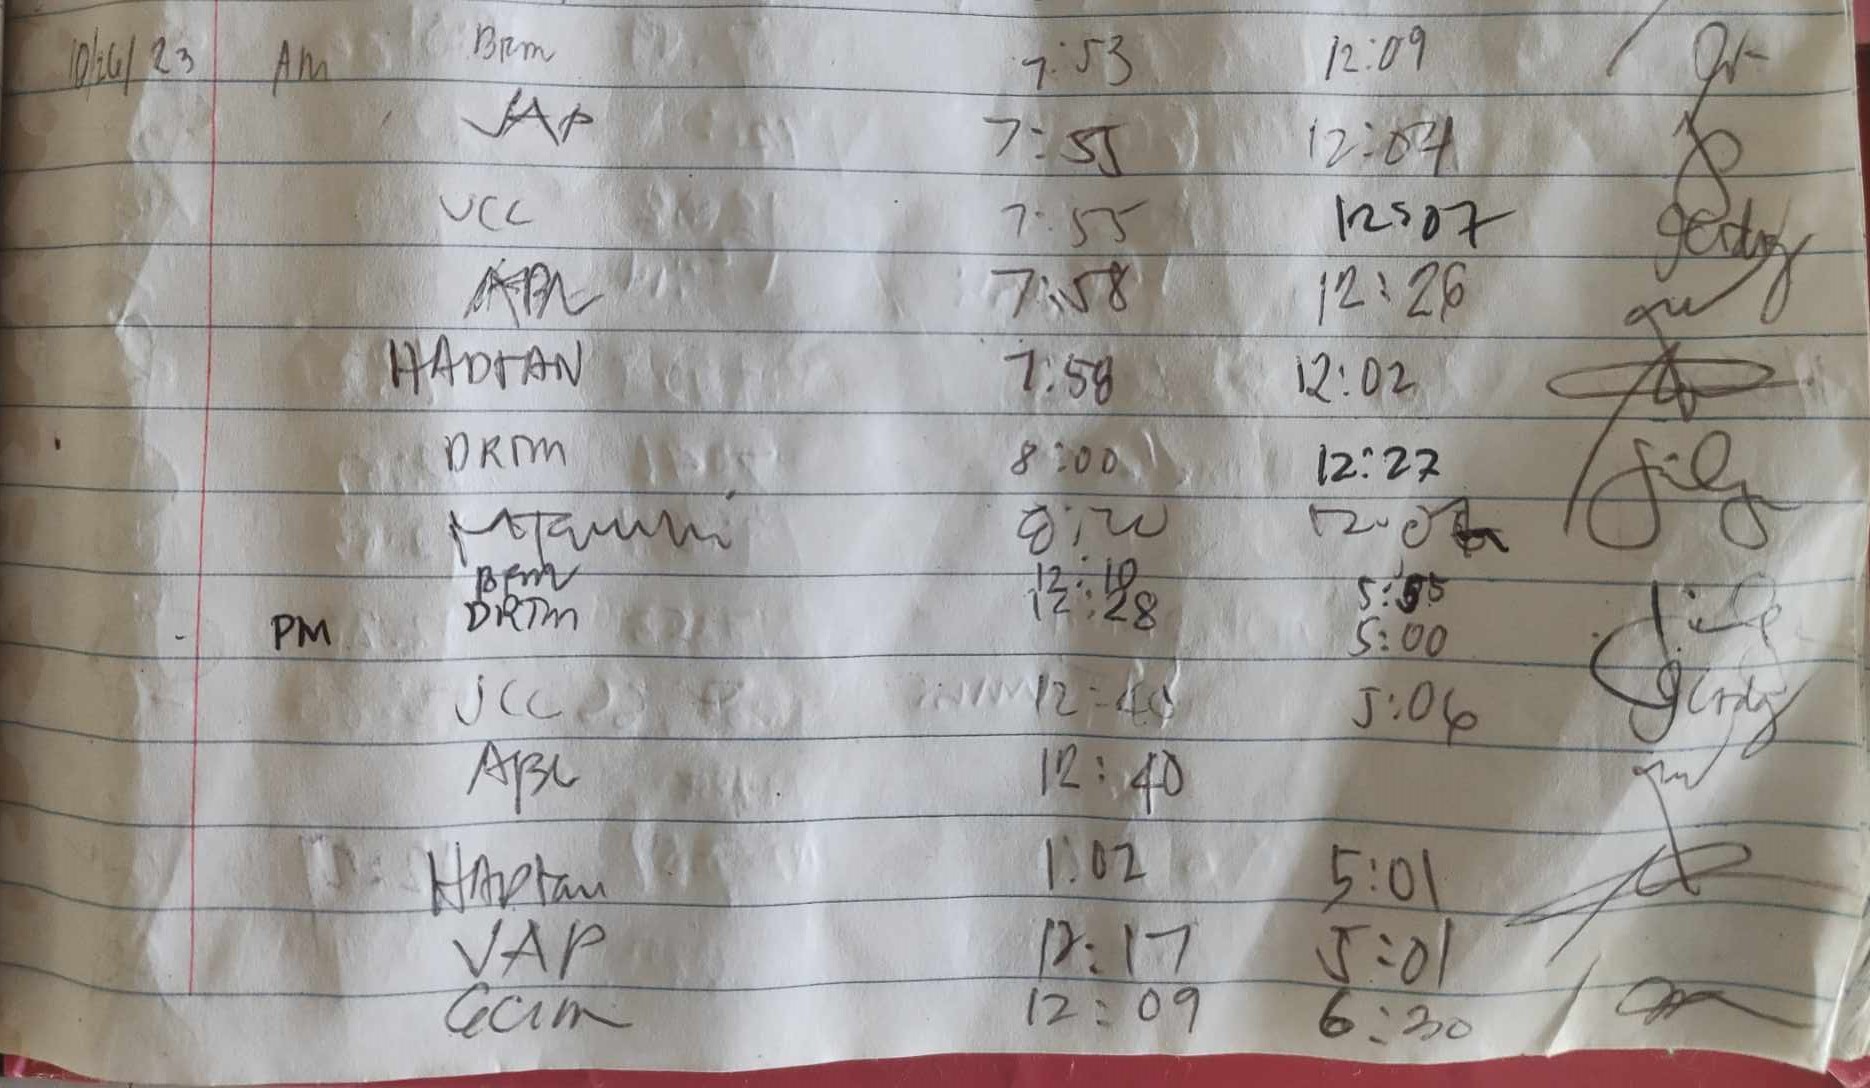 10/26/23 AM BRM 7:53 12:09
VAP 7:55 12:07
JCC 7:55 12:07 gerdy
ABL 7:58 12:26
HADTAN 7:58 12:02
DRTM 8:00 12:27
8:20
BRM 12:10 5:55
PM DRTM 12:28 5:00
JCC 12:40 5:06 gerdy
ABL 12:40
HADtan 1:02 5:01
VAP 12:17 5:01
12:09 6:30